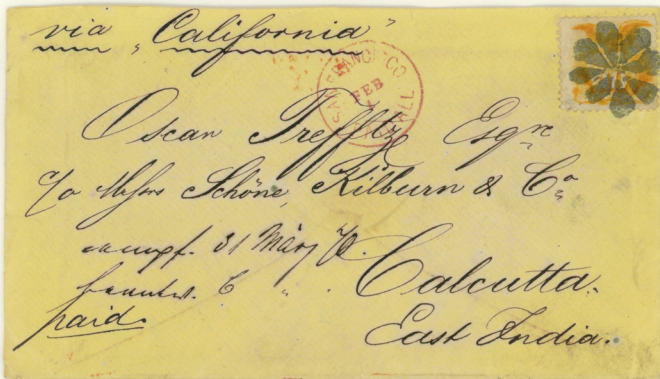 via "California"
SAN FRANCISCO
FEB
CALL
Oscar Trefftz Esqre
c/o Messrs Schöne, Kilburn & Co
empf. 31 März 70.
beantw. 6 " .
Calcutta.
paid.
East India.